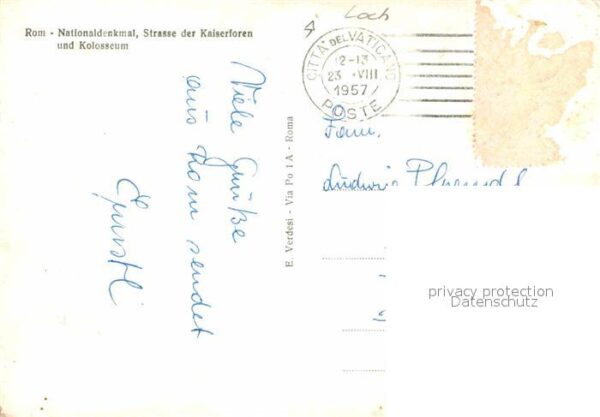 Rom - Nationaldenkmal, Strasse der Kaiserforen
und Kolosseum
Loch
CITTA' DEL VATICANO
12-13
23 . VIII
1957
POSTE
Viele Grüße
aus Rom sendet
Gustl
E. Verdesi - Via Po 1 A - Roma
Fam.
Ludwig
privacy protection
Datenschutz